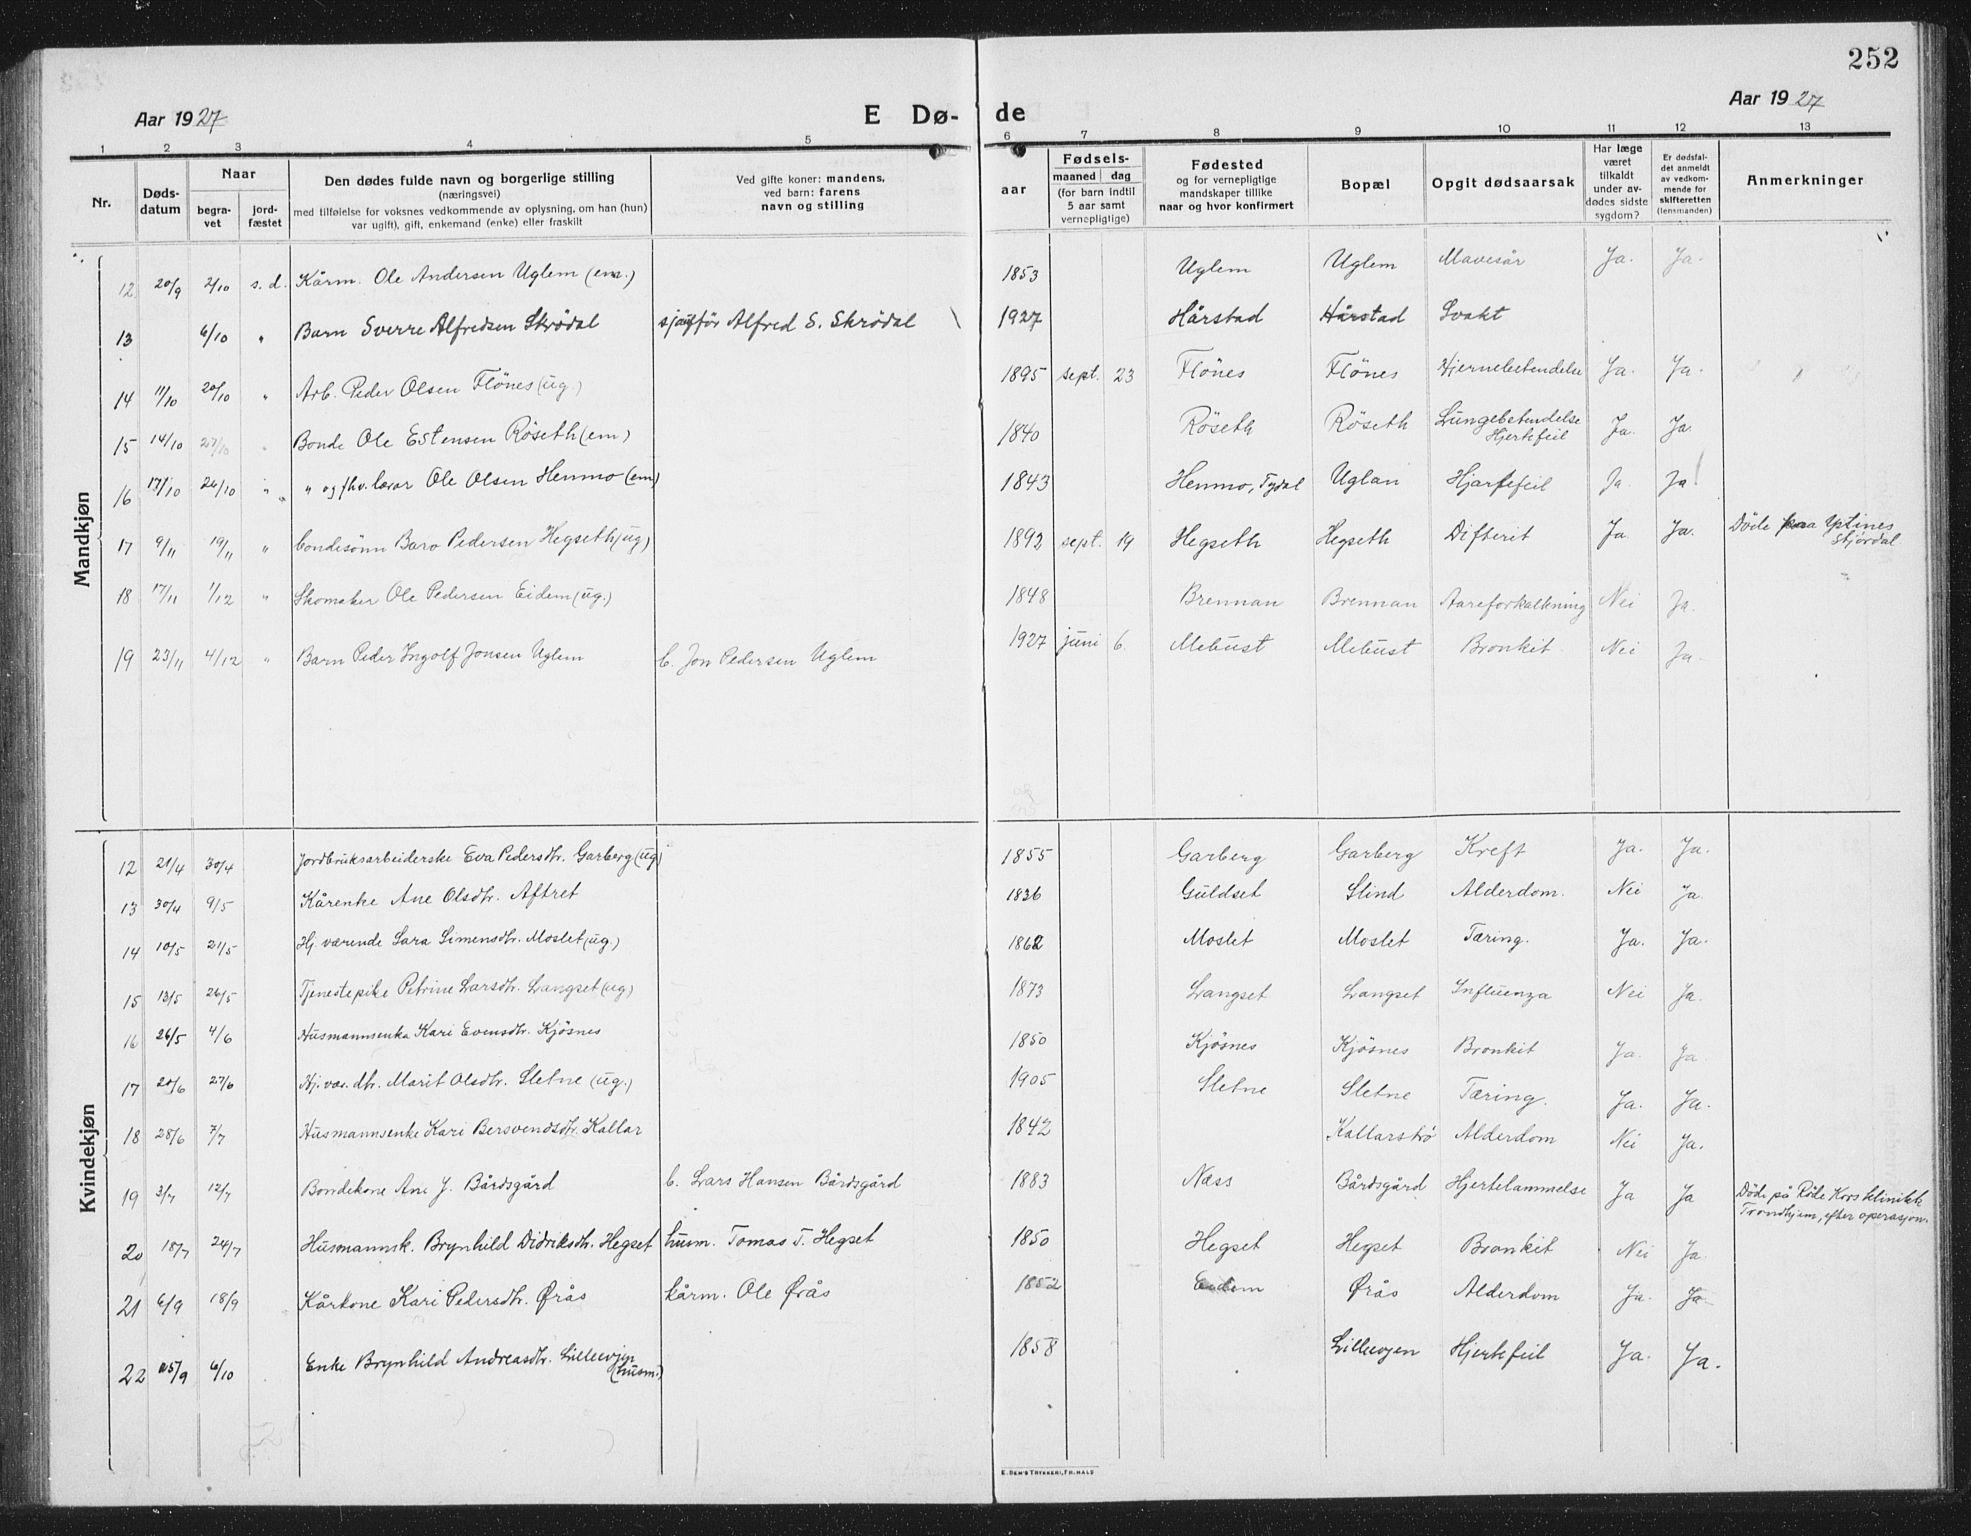 252
Aar 1927 E Dø- de Aar 1927
1 2 3 4 5 6 7 8 9 10 11 12 13
Nr. Døds-datum Naar begra-vet jord-fæstet Den dødes fulde navn og borgerlige stilling (næringsvei) med tilføielse for voksnes vedkommende av oplysning, om han (hun) var ugift), gift, enkemand (enke) eller fraskilt Ved gifte koner: mandens, ved barn: farens navn og stilling aar Fødsels- maaned dag (for barn indtil 5 aar samt vernepligtige) Fødested og for vernepligtige mandskaper tillike naar og hvor konfirmert Bopæl Opgit dødsaarsak Har læge været tilkaldt under av-dødes sidste sygdom? Er dødsfal-det anmeldt av vedkom-mende for skifteretten (lensmanden) Anmerkninger
Mandkjøn
12 20/9 2/10 s. d. Kårm. Ole Andersen Uglem (em.) 1853 Uglem Uglem Mavesår Ja. Ja.
13 6/10 " Barn Sverre Alfredsen Skrödal sjauför Alfred S. Skrödal 1927 Hårstad Hårstad Svakt
14 11/10 20/10 " Arb. Peder Olsen Flönes (ug.) 1895 sept. 23 Flönes Flönes Hjernebetendelse Ja. Ja.
15 14/10 27/10 " Bonde Ole Estensen Röseth (em) 1840 Röseth Röseth Lungebetendelse Hjertefeil Ja. Ja.
16 17/10 26/10 " " og fhv. lærar Ole Olsen Henmo (em) 1843 Henmo, Tydal Uglan Hjartefeil Ja. Ja!
17 9/11 19/11 " bondesönn Baro Pedersen Hegseth (ug) 1892 sept. 19 Hegseth Hegseth Difterit Ja. Ja. Döde paa Ystines Stjørdal
18 17/11 1/12 " Skomaker Ole Pedersen Eidem (ug.) 1848 Brennan Brennan Aareforkalkning Nei Ja.
19 23/11 4/12 " Barn Peder Ingolf Jonsen Uglem b. Jon Pedersen Uglem 1927 juni 6. Mebust Mebust Bronkit. Nei Ja.
Kvindekjøn
12 21/4 30/4 Jordbruksarbeiderske Eva Pedersdtr. Garberg (ug) 1855 Garberg Garberg Kreft Ja. Ja.
13 30/4 9/5 Kårenke Ane Olsdtr. Aftret 1836 Guldset Slind Alderdom. Nei Ja.
14 10/5 21/5 Hj. værende Sara Simensdtr. Moslet (ug.) 1862 Moslet Moslet Tæring. Ja. Ja.
15 13/5 26/5 Tjenestepike Petrine Larsdtr. Langset (ug) 1873 Langset Langset Influenza Nei Ja.
16 26/5 4/6 Husmannsenka Kari Evensdtr. Kjösnes 1850 Kjösnes Kjösnes Bronkit Ja. Ja.
17 20/6 27/6 Hj. vær. dtr. Marit Olsdtr. Sletne (ug.) 1905 Sletne Sletne Tæring. Ja. Ja.
18 28/6 7/7 Husmannsenke Kari Bersvendsdtr. Kallar 1842 Kallarströ Alderdom Nei Ja.
19 3/7 12/7 Bondekone Ane J. Bårdsgård b. Lars Hansen Bårdsgård 1883 Næss Bårdsgård Hjertelammelse Ja Ja Döde på Röde Kors klinikk Trondhjem, efter operasjon.
20 18/7 24/7 Husmannsk. Brynhild Didriksdtr. Hegset husm. Tomas T. Hegset 1850 Hegset Hegset Bronkit Nei Ja.
21 6/9 18/9 Kårkone Kari Pedersdtr. Ørås kårm. Ole Ørås 1852 Eidem Ørås Alderdom Ja. Ja
22 25/9 6/10 Enke Brynhild Andreasdtr. Lillevjen (husm.) 1858 Lillevjen Hjertefeil Ja. Ja.
E. SEM'S TRYKKERI, FR.HALD